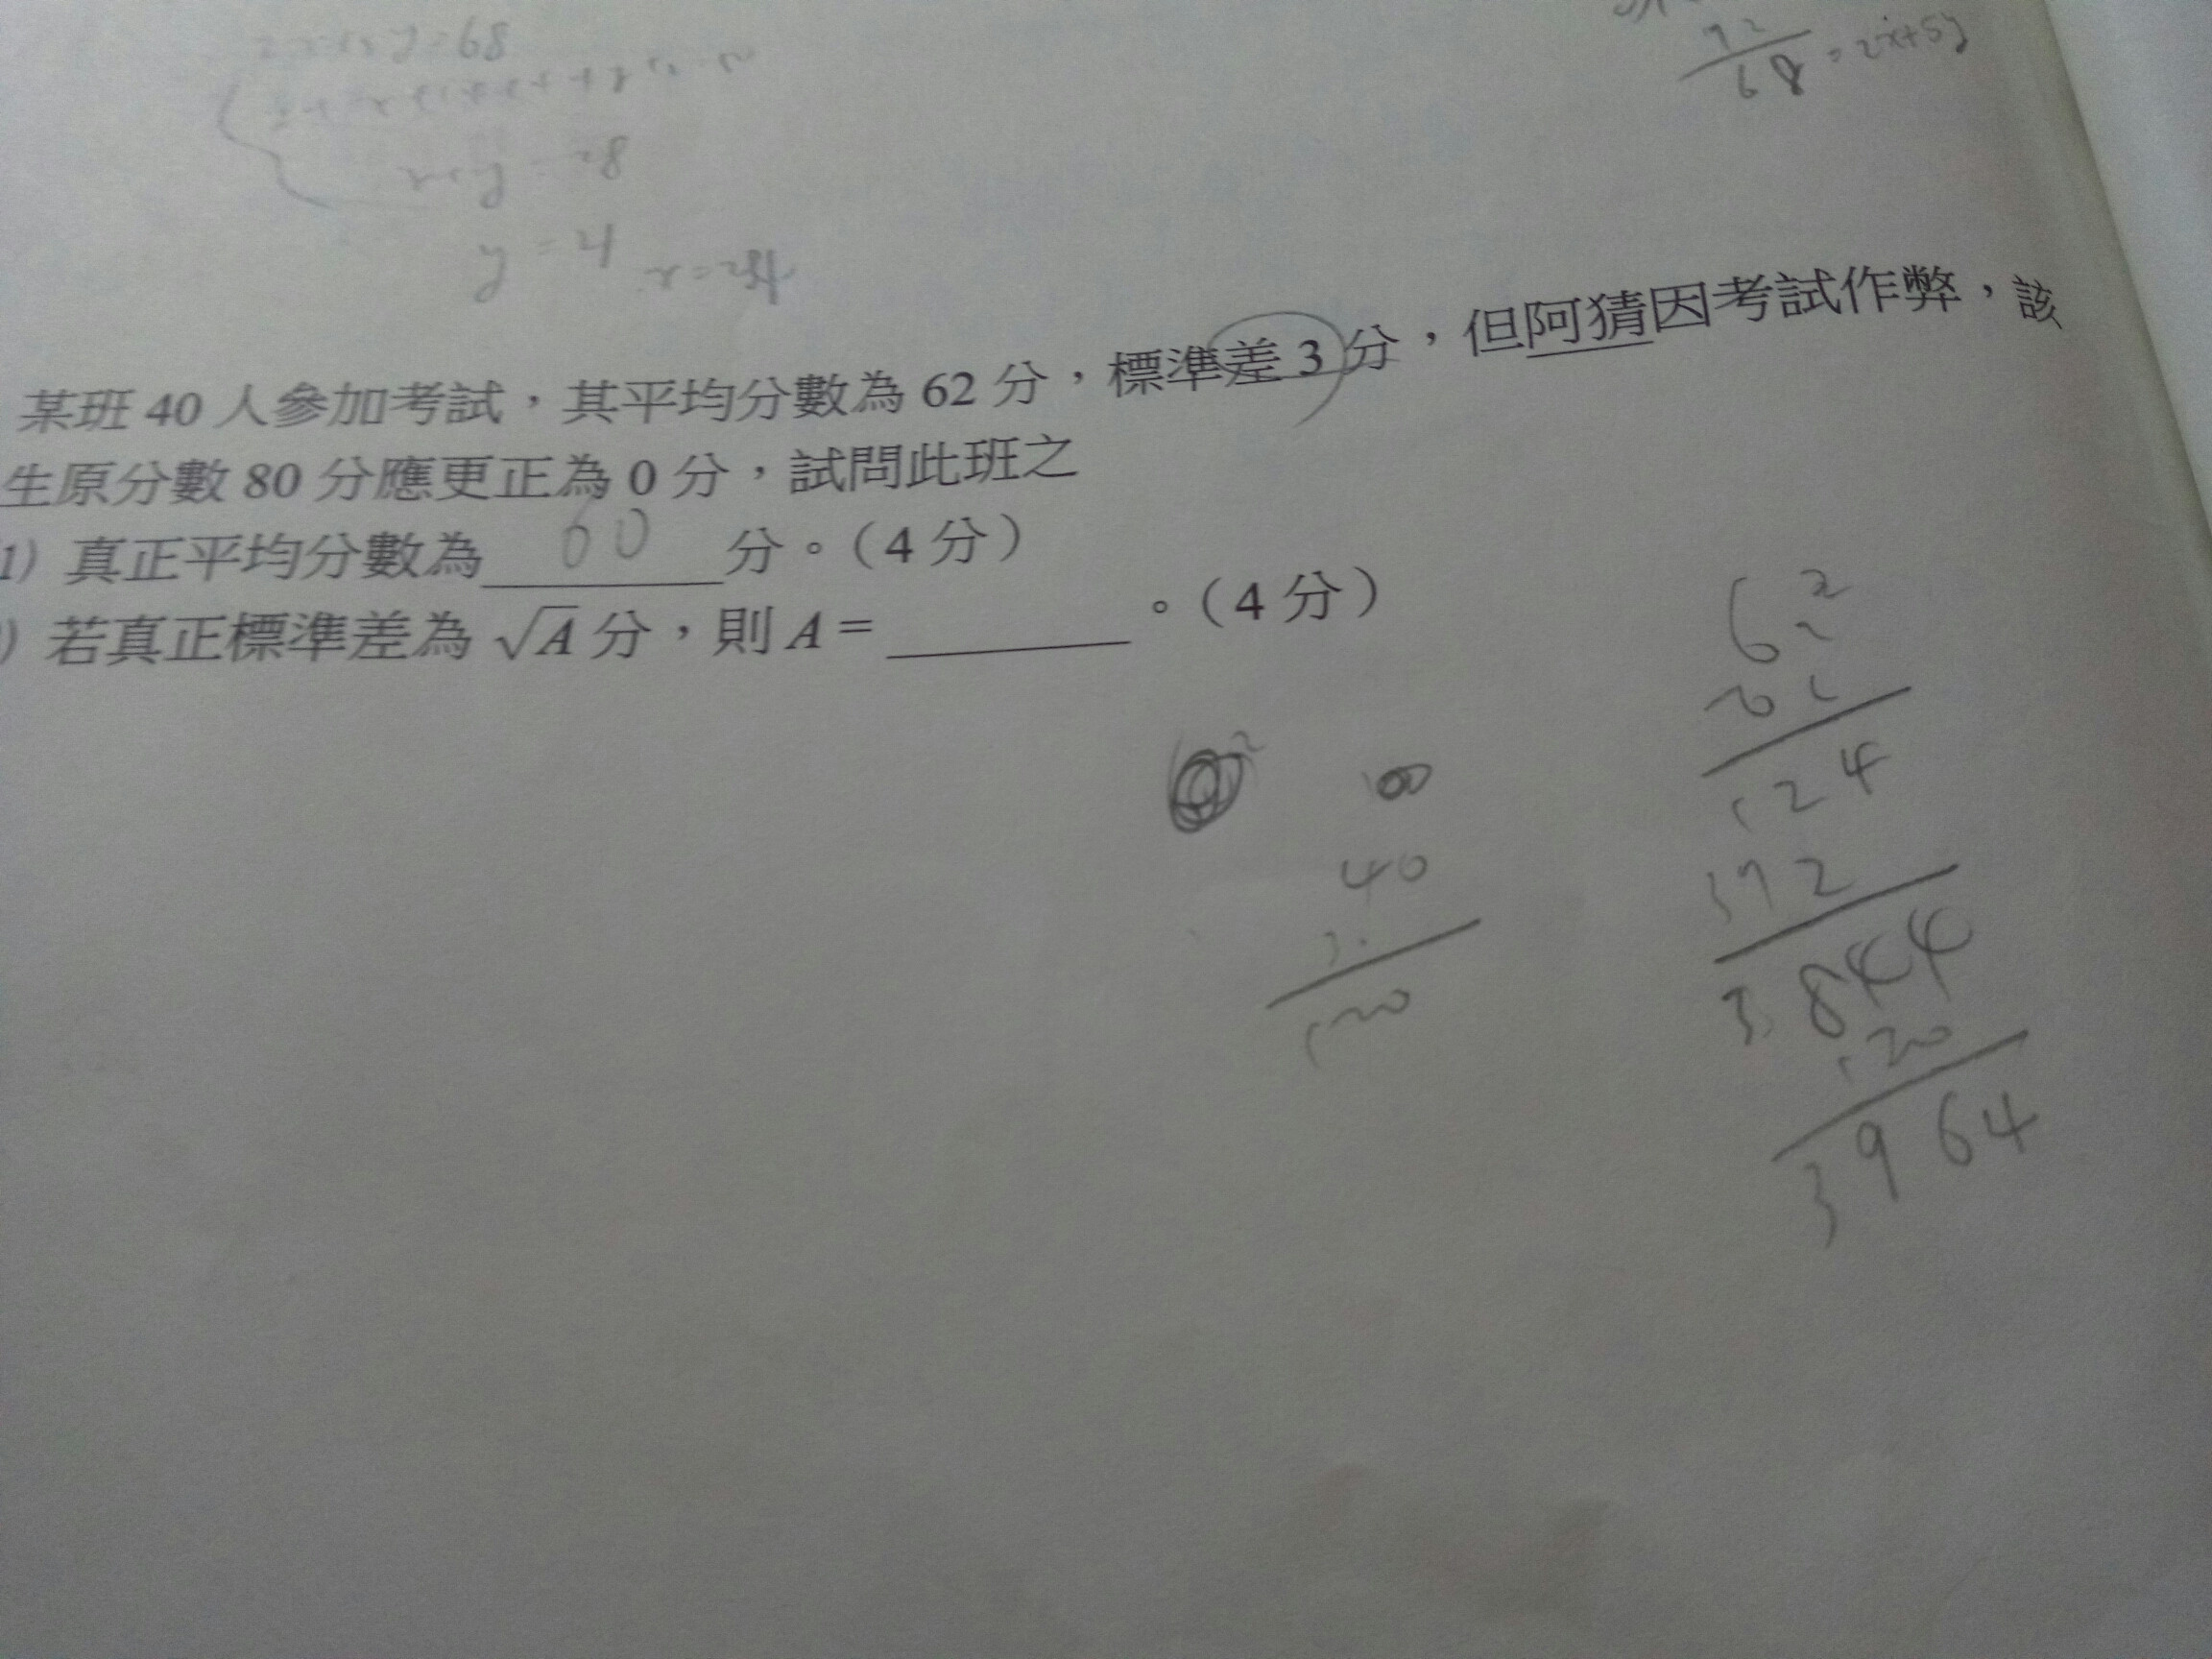 y=68
x+y=28
y=4 x=24
68=2x+5y
某班 40 人參加考試，其平均分數為 62 分，標準差 3 分，但阿猜因考試作弊，該
生原分數 80 分應更正為 0 分，試問此班之
1) 真正平均分數為 60 分。（4 分）
) 若真正標準差為 √A 分，則 A = 。（4 分）
40
3
120
62
62
124
372
3844
120
3964